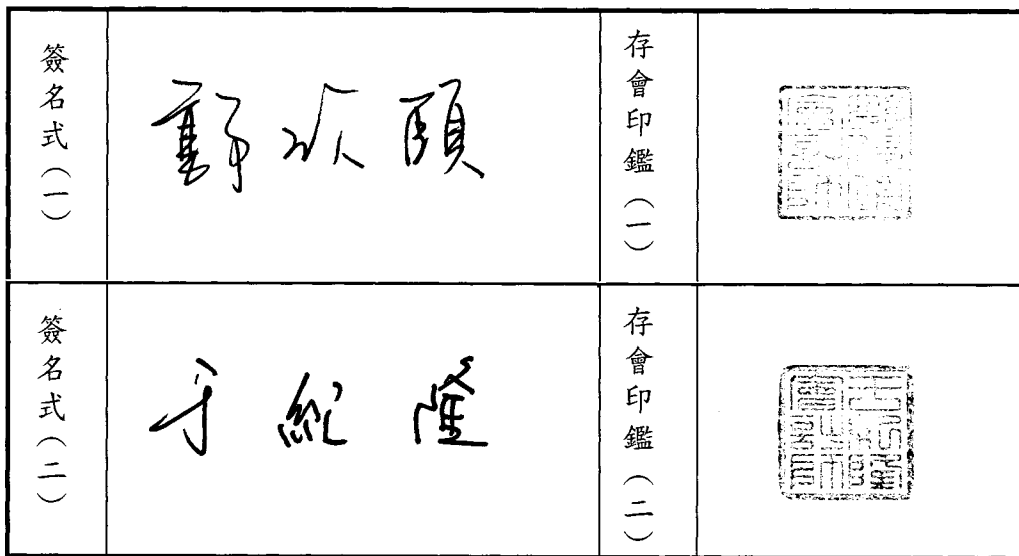 簽名式（一）
郭欣頤
存會印鑑（一）
簽名式（二）
于紀隆
存會印鑑（二）